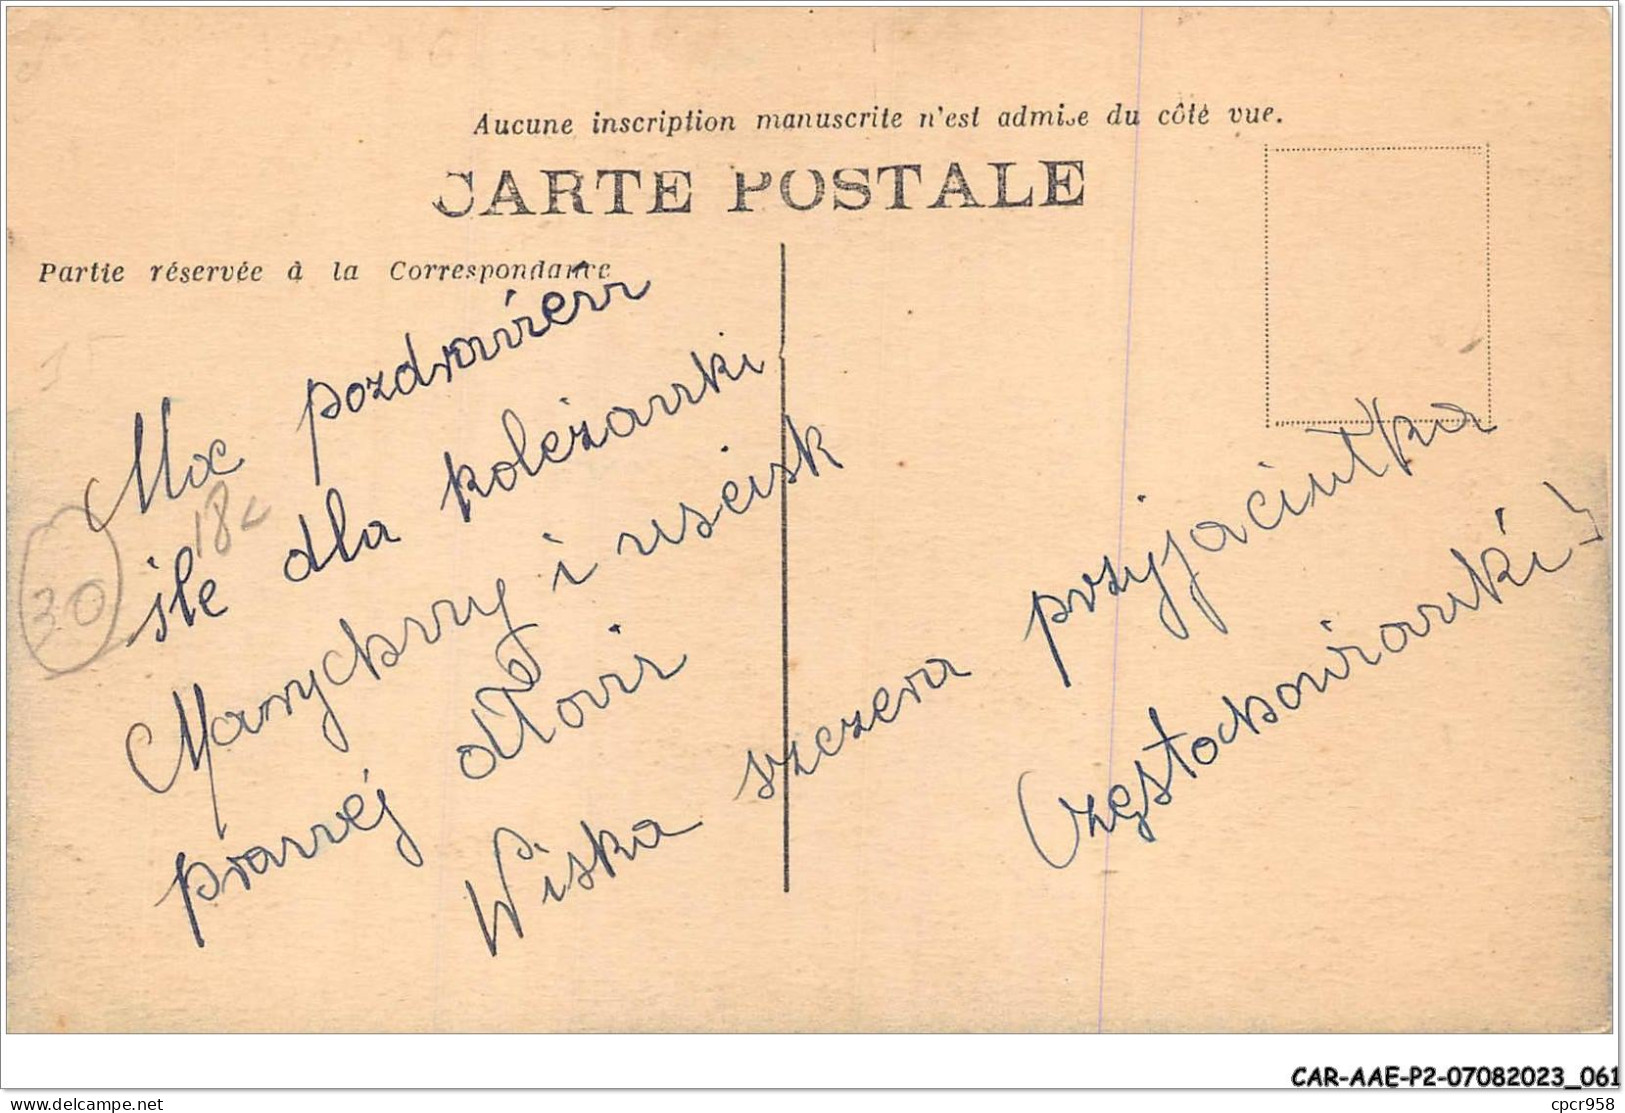 Aucune inscription manuscrite n'est admise du côté vue.
CARTE POSTALE
Partie réservée à la Corrrespondance
Moc pozdrowień
śle dla koleżanki
i uścisk
prawej dłoni
Wiśka szczera przyjaciółka
Częstochowianki!
30
18
15
CAR-AAE-P2-07082023_061
delcampe.net
cpcr958